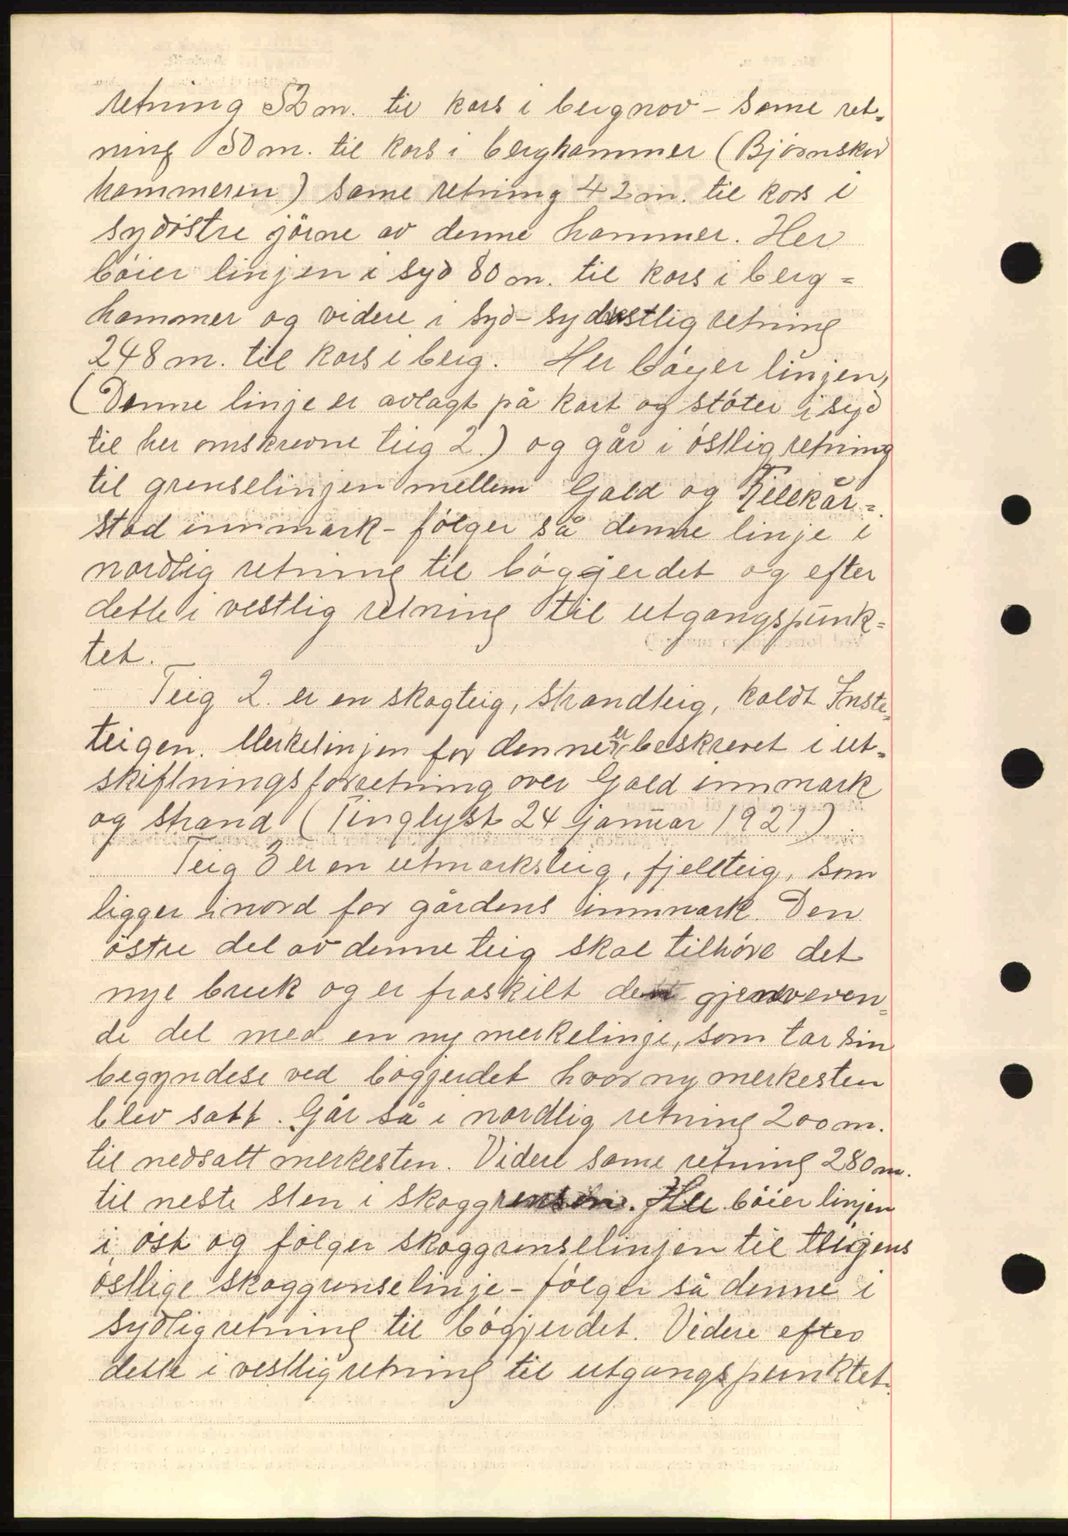 retning 52 m. til kors i bergnov - same ret-
ning 50 m. til kors i berghammer (Bjørnskar
hammeren) same retning 42 m. til kors i
sydöstre jörne av denne hammer. Her
böier linjen i syd 80 m. til kors i berg=
hammer og videre i syd-sydøstlig retning
248 m. til kors i berg. Her böyer linjen,
(Denne linje er avlagt på kart og stöter i syd
til her omskrevne teig 2.) og går i östlig retning
til grenselinjen mellem Gald og
stad innmark - fölger så denne linje i
nordlig retning til bögjerdet og efter
dette i vestlig retning til utgangspunk=
tet.
Teig 2 er en skogteig, strandteig, kaldt Inste=
teigen. Merkelinjen for denne er beskrevet i ut=
skiftningsforretning over Gald innmark
og strand (Tinglyst 24 januar 1921).
Teig 3 er en utmarksteig, fjellteig, som
ligger i nord for gårdens innmark. Den
östre del av denne teig skal tilhöre det
nye bruk og er fraskilt den gjenveren=
de del med en ny merkelinje, som tar sin
begyndelse ved bögjerdet hvor ny merkesten
blev satt. Går så i nordlig retning 200 m.
til nedsatt merkesten. Videre same retning 280 m.
til neste sten i skoggrensen. Her böier linjen
i öst og fölger skoggrenselinjen til teigens
östlige skoggrenselinje - fölger så denne i
sydlig retning til bögjerdet. Videre efter
dette i vestlig retning til utgangspunktet.